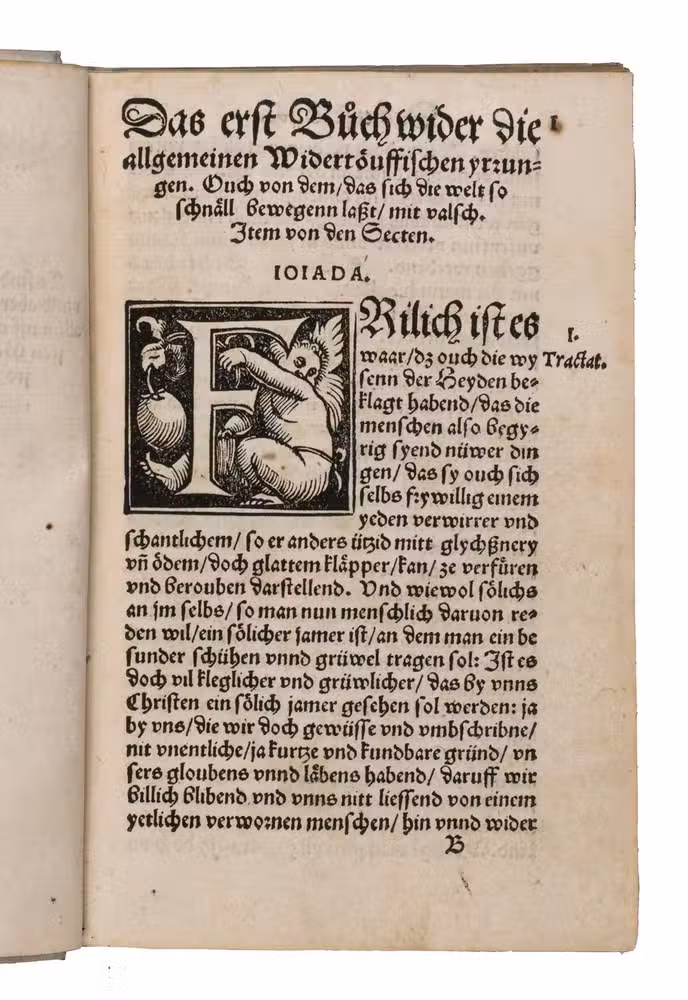 Das erst Bůch wider die
I
allgemeinen Widertöuffischen yrrun⸗
gen. Ouch von dem/das sich die welt so
schnäll bewegenn laßt/ mit valsch.
Item von den Secten.
IOIADA.
FRilich ist es
I.
Tractat.
waar/dz ouch die wy
senn der Heyden be⸗
klagt habend/das die
menschen also begy⸗
rig syend nüwer din
gen/ das sy ouch sich
selbs frywillig einem
yeden verwirrer vnd
schantlichem/ so er anders ützid mitt glychßnery
vñ ödem/doch glattem kläpper/kan/ ze verfüren
vnd berouben darstellend. Vnd wiewol sölichs
an jm selbs/ so man nun menschlich daruon re⸗
den wil/ein sölicher jamer ist/an dem man ein be
sunder schühen vnnd grüwel tragen sol: Ist es
doch vil kleglicher vnd grüwlicher/ das by vnns
Christen ein sölich jamer gesehen sol werden: ja
by vns/die wir doch gewüsse vnd vmbschribne/
nit vnentliche/ja kurtze vnd kundbare gründ/ vn
sers gloubens vnnd läbens habend/ daruff wir
billich blibend vnd vnns nitt liessend von einem
yetlichen verwornen menschen/ hin vnnd wider
B